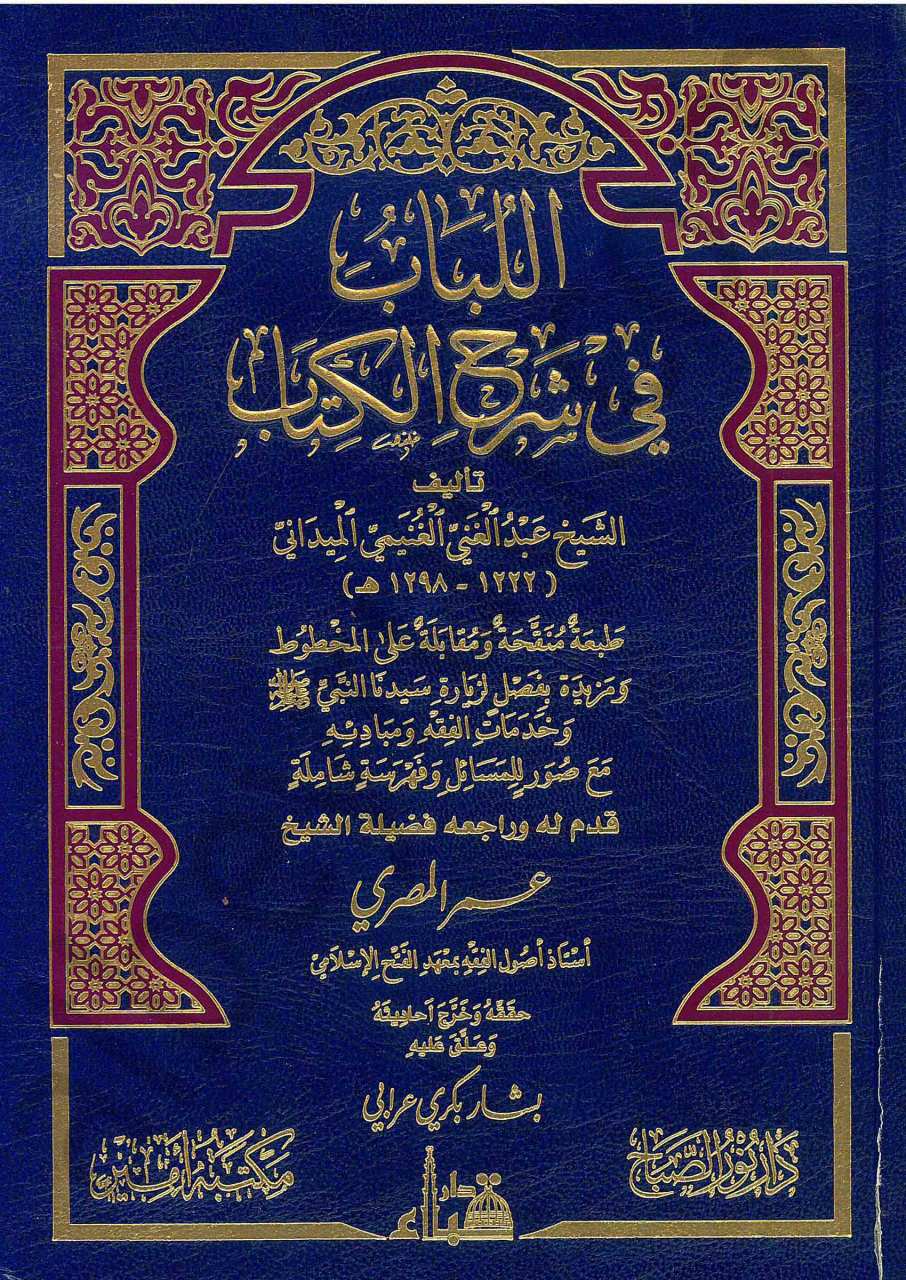 اللُّبَابُ
فِي شَرْحِ الكِتَابِ
تأليف
الشَّيخ عَبْدُ الْغَنِيِّ الْغُنَيمِيِّ الْمِيدَانِيِّ
(١٢٢٢ - ١٢٩٨ هـ)
طَبعَةٌ مُنَقَّحَةٌ وَمُقابَلَةٌ عَلىٰ المَخْطوُط
وَمَزيدَة بِفَصْلٍ لِزيَارةِ سَيدنَا النَّبيِّ ﷺ
وَخَدَمَاتِ الفِقْهِ وَمَبَادِئِهِ
مَعَ صُوَرٍ لِلمَسَائِلِ وَفَهْرَسَةٍ شَامِلَةٍ
قدم له وراجعه فضيلة الشيخ
عمر المصري
أستاذ أصول الفقه بمعهد الفتح الإسلامي
حققهُ وَخَرَّجَ أحاديثَهُ
وَعَلَّقَ عَليهِ
بشار بكري عرابي
دَارُ نُورُ الصَّبَاح
دار قباء
مكتبة أمين